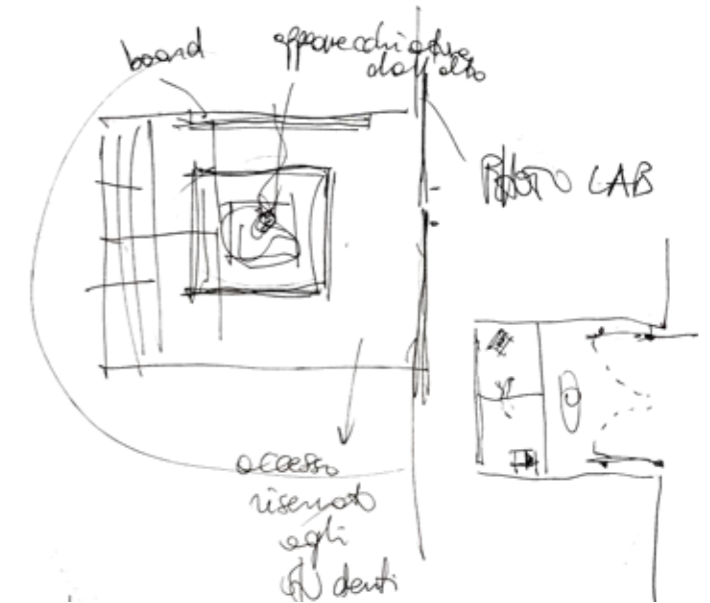 board
apparecchiature
dall'alto
PHOTO LAB
accesso
riservato
agli
denti